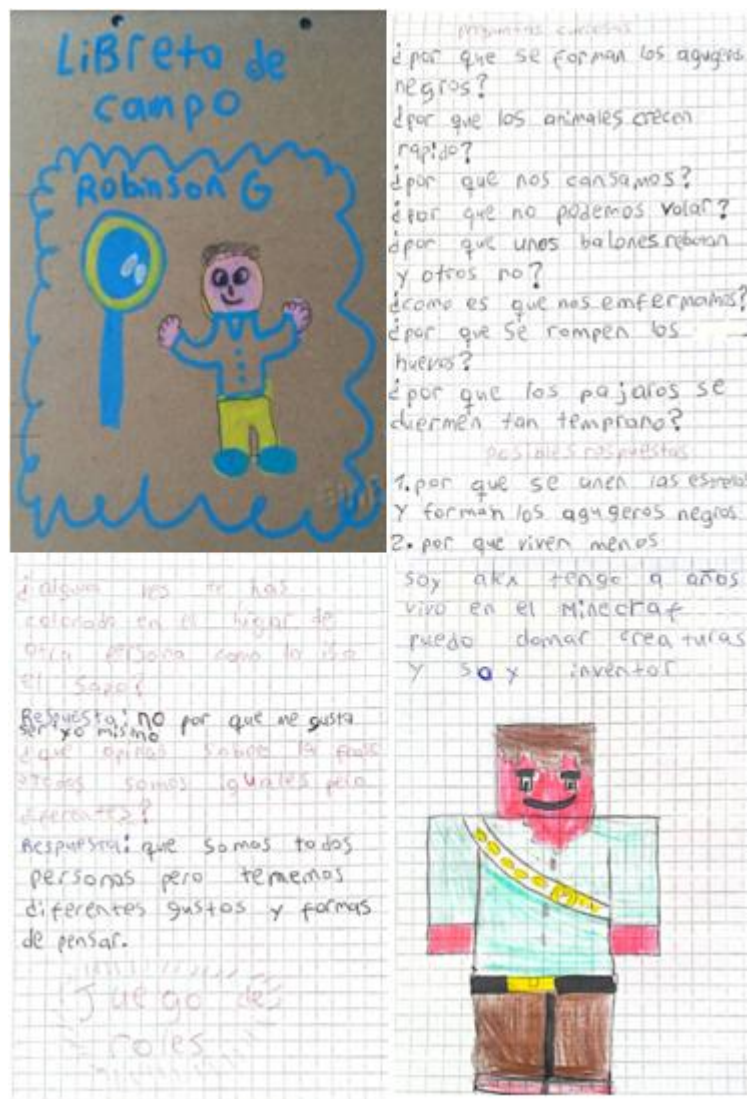 LiBreta de
campo
Robinson G
preguntas curiosas
¿por que se forman los agugeros
negros?
¿por que los animales crecen
rapido?
¿por que nos cansamos?
¿por que no podemos volar?
¿por que unos balones rebotan
y otros no?
¿como es que nos emfermamos?
¿por que se rompen los
huevos?
¿por que los pajaros se
duermen tan temprano?
posibles respuestas
1. por que se unen las estrellas
y forman los agugeros negros.
2. por que viven menos
¿alguna ves te has
colocado en el lugar de
otra persona como lo iso
el
Respuesta: no por que me gusta
ser yo mismo
¿que opinas sobre la frase
todos somos iguales pero
diferentes?
Respuesta: que somos todos
personas pero tememos
diferentes gustos y formas
de pensar.
Juego de
roles
soy alex tengo 9 años
vivo en el Minecraf
puedo domar creaturas
y soy inventor